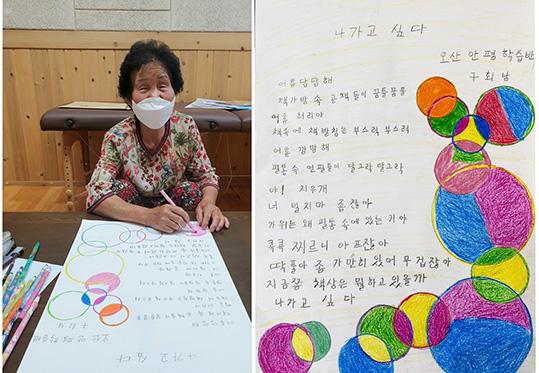 나가고 싶다
오산 안평 학습반
구희남
어휴 답답해
책가방 속 공책들이 꿈틀꿈틀
어휴 허리아
책속에 책받침은 부스럭 부스러
어휴 깜깜해
필통 속 연필들이 달그락 달그락
아! 지우개
너 밀지마 좁잖아
가위는 왜 필통 속에 있는 거야
콕콕 찌르니 아프잖아
딱풀아 좀 가만히 있어 무겁잖아
지금쯤 책상은 뭘하고 있을까
나가고 싶다